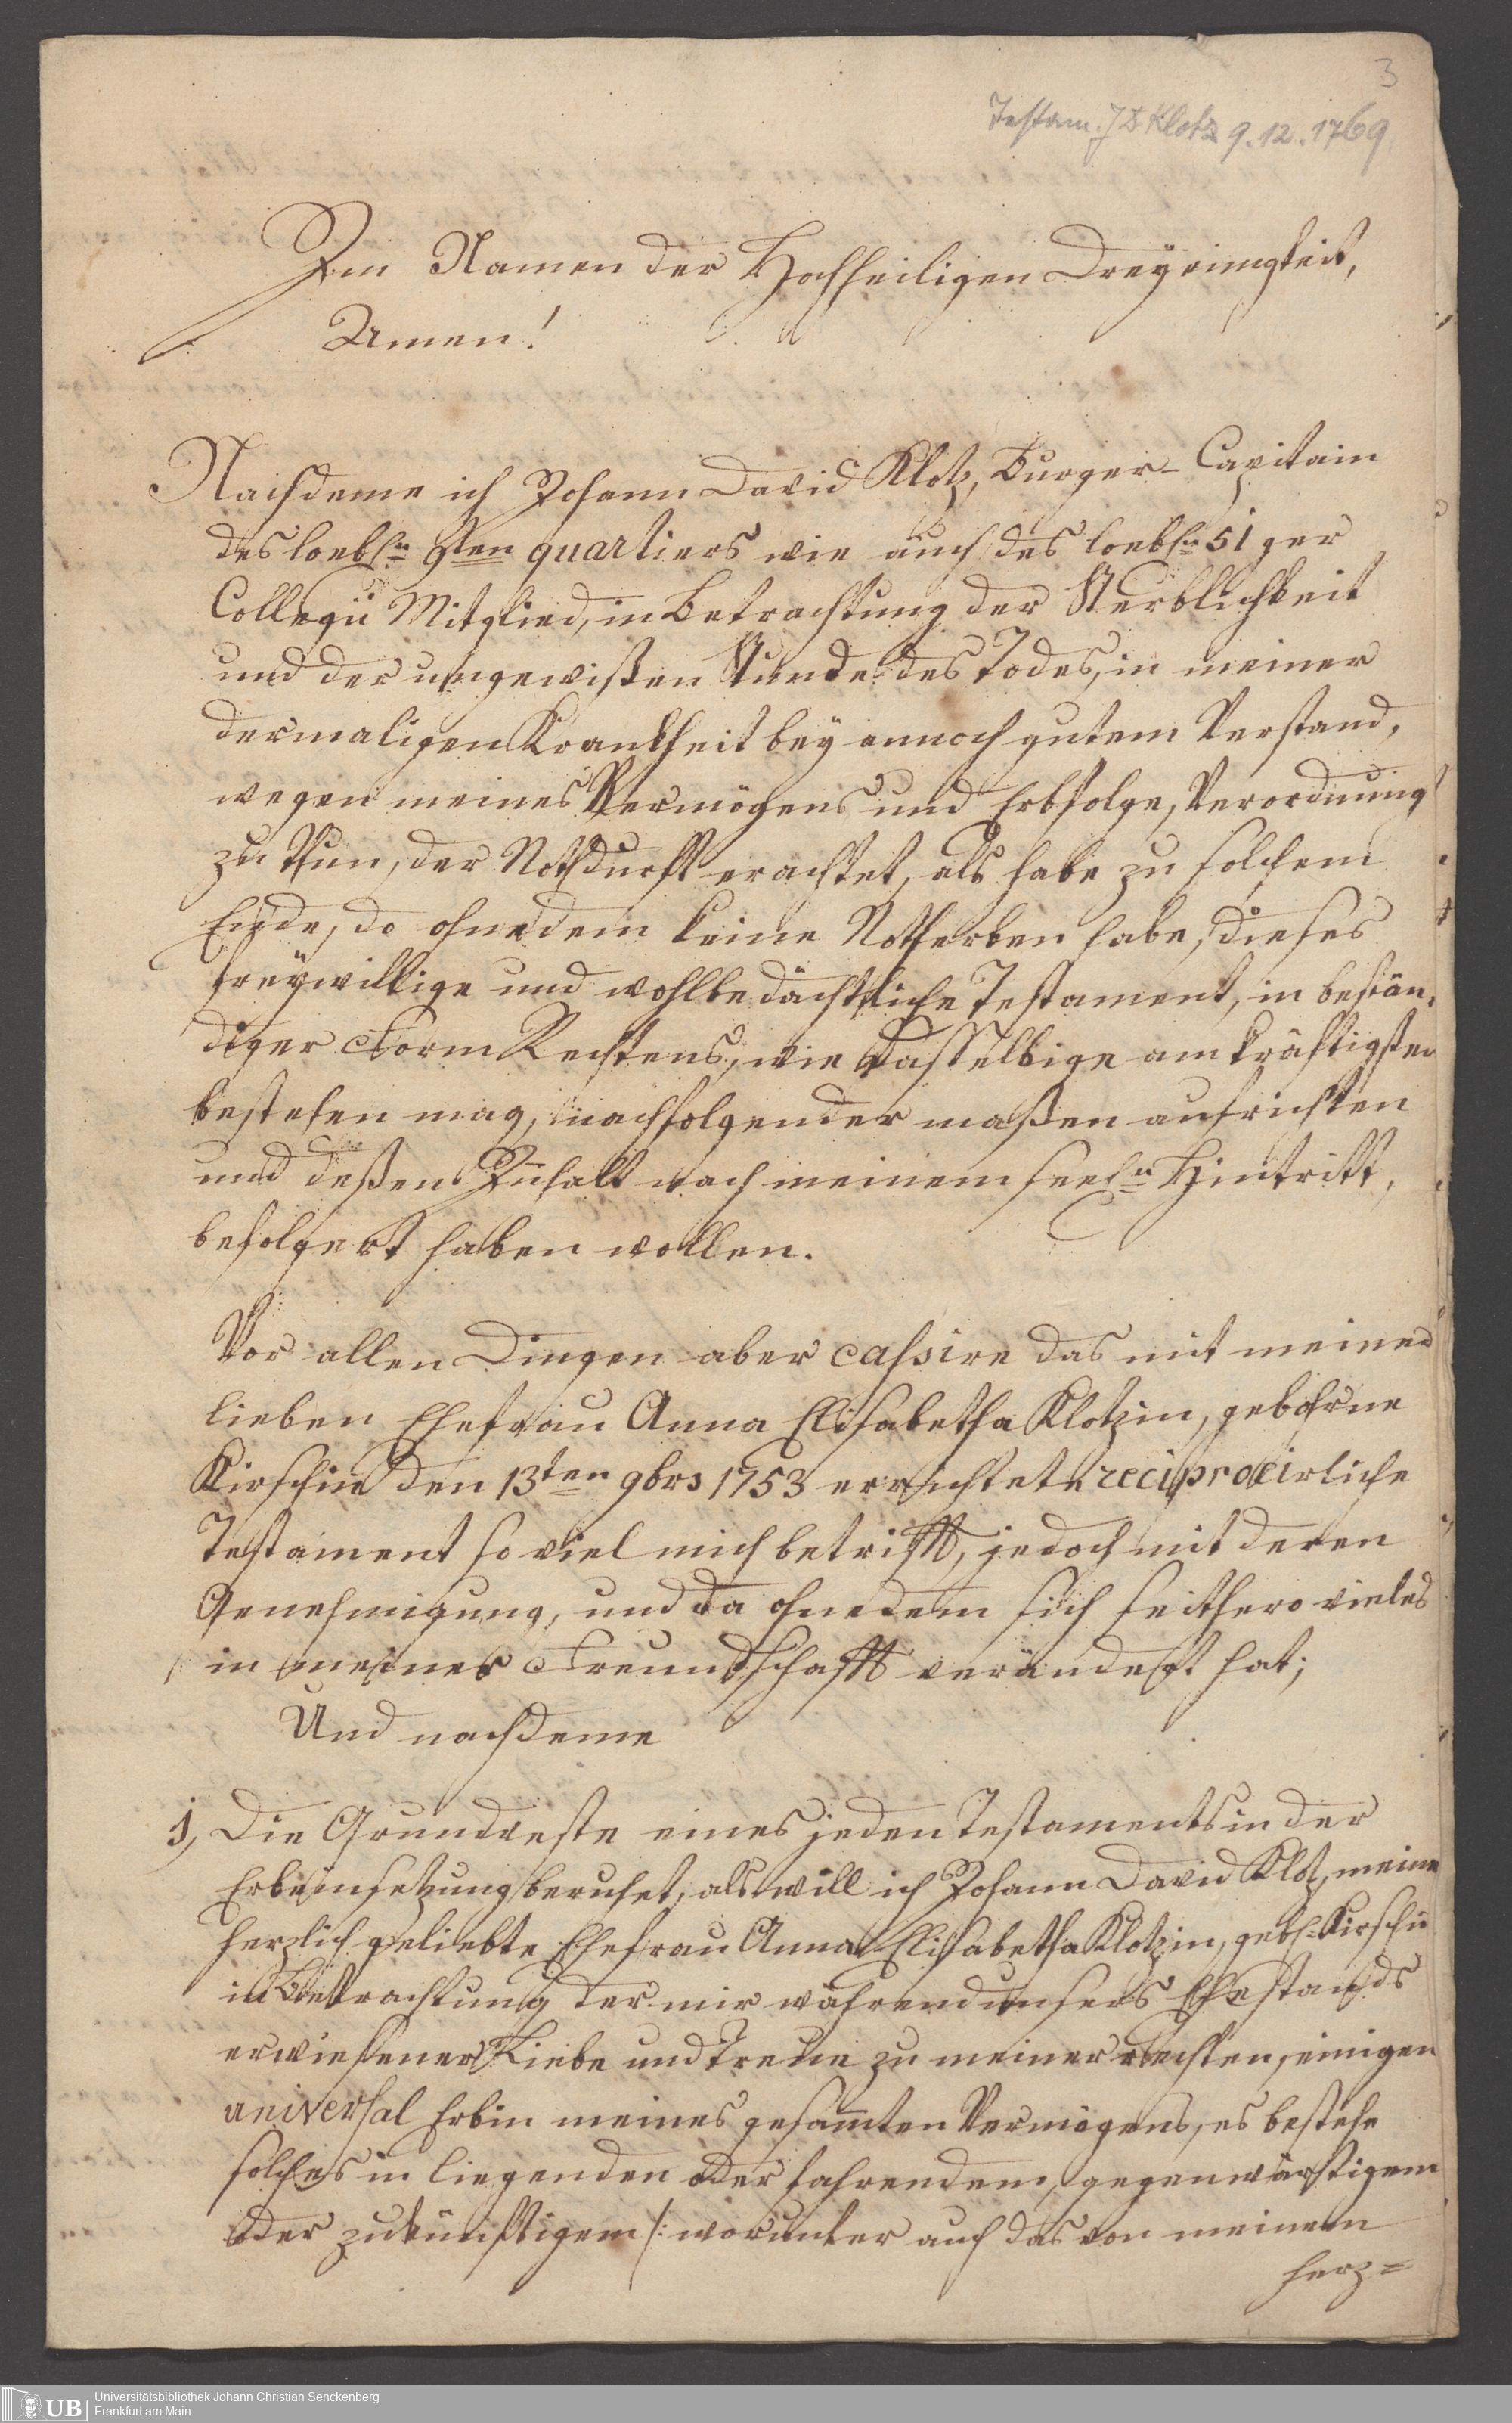 3
Testam. J D Klotz 9.12.1769.
Im Namen der Hochheiligen Dreyeinigkeit,
Amen!
Nachdeme ich Johann David Klotz, Burger-Capitain
des loebln 9ten quartiers wie auch des loebln 51 ger
Collegii Mitglied, in Betrachtung der Sterblichkeit
und der ungewißen Stunde des Todes, in meiner
dermaligen Krankheit bey annoch gutem Verstand,
wegen meines Vermögens und Erbfolge, Verordnung
zu thun, der Nothdurft erachtet, als habe zu solchem
Ende, da ohnedem keine Notherben habe, dieses
freywillige und wohlbedächtliche Testament, in bestän-
diger Form Rechtens, wie dasselbige am kräftigsten
bestehen mag, nachfolgender maßen aufrichten
und deßen Inhalt nach meinem seeln Hintritt,
befolgert haben wollen.
Vor allen Dingen aber cassire das mit meiner
lieben Ehefrau Anna Elisabetha Klotzin, gebohrne
Kirschin den 13ten 9brs 1753 errichtete reciprocirliche
Testament so viel mich betrifft, jedoch mit deren
Genehmigung, und da ohnedem sich seithero vieles
in meiner Freundschafft verändert hat;
Und nachdeme
1, Die Grundveste eines jeden Testaments in der
Erbeinsetzung beruhet, als will ich Johann David Klotz, meine
herzlich geliebte Ehefrau Anna Elisabetha Klotzin, gebh. Kirschin
in Betrachtung der mir während unsers Ehestands
erwiesener Liebe und Treue zu meiner rechten, einigen
universal Erbin meines gesam̃ten Vermögens, es bestehe
solches in liegenden oder fahrendem, gegenwärtigem
oder zukünftigem /: worunter auch das von meinem
herz=
UB
Universitätsbibliothek Johann Christian Senckenberg
Frankfurt am Main